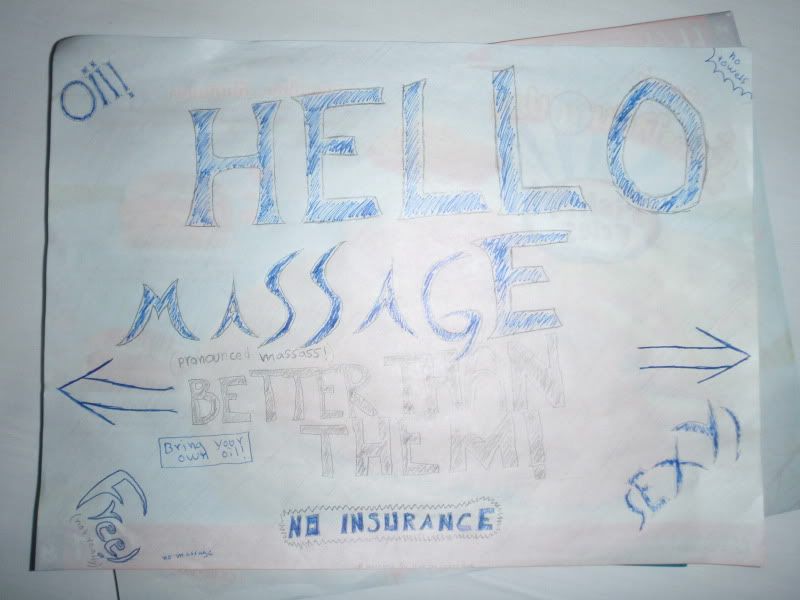 Oil!
no
towels
HELLO
MASSAGE
pronounced massass!
BETTER THAN
THEM!
Bring your
own oil!
SEXY
Free
(not really)
no massage
NO INSURANCE